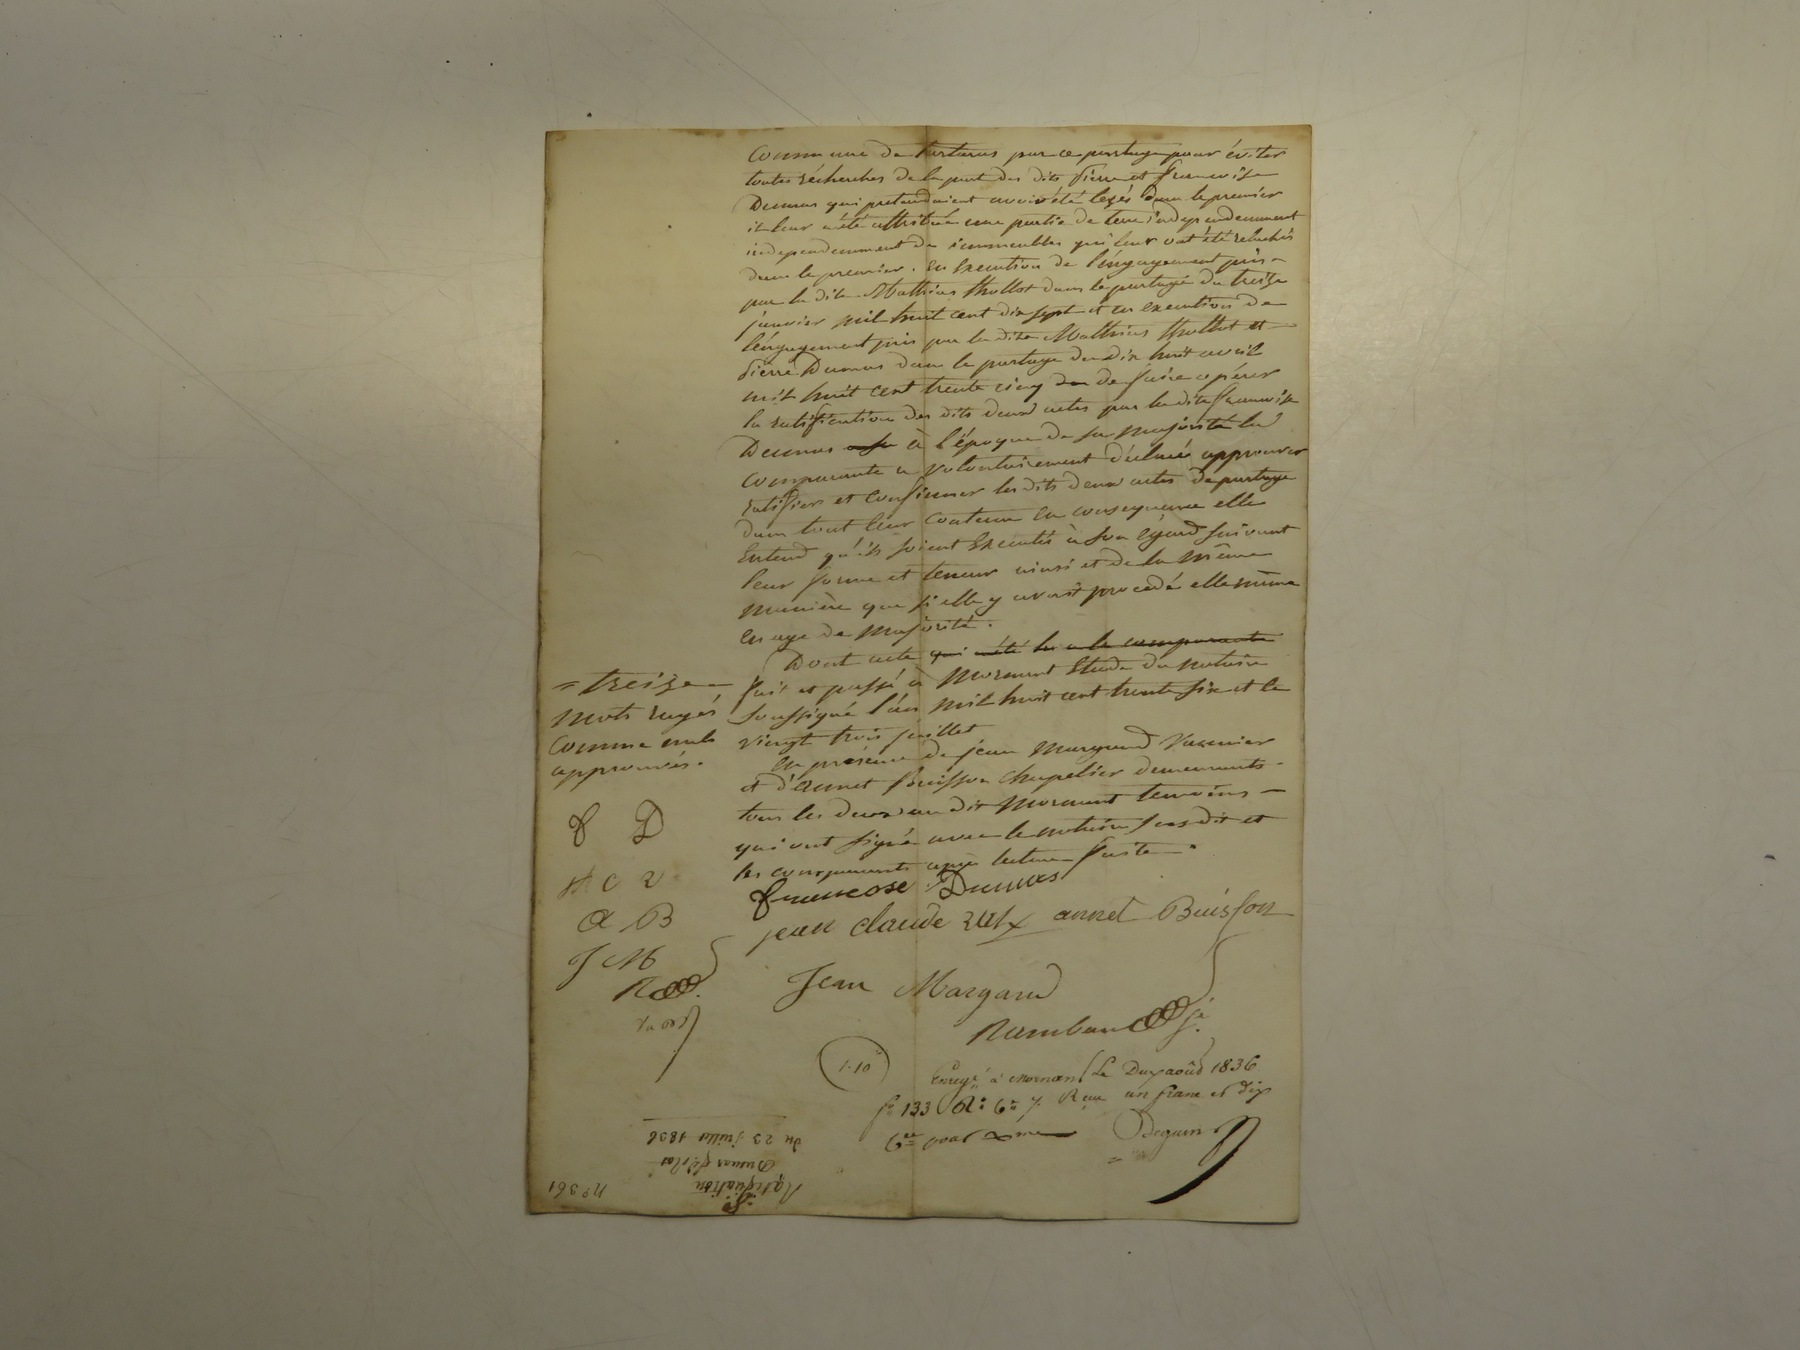 Commune de Tartaras par ce partage pour éviter
toutes récherches de la part des dits Pierre et francoise
Dumas qui pretendaient avoir été lezés dans le premier
il leur a été attribué une partie de terre independemment
independemment des immeubles qui leur ont été relachés
dans le premier. en Execution de l'engagement pris
par la dite Mathias thollot dans le partage du treize
janvier mil huit cent dix sept et en execution de
l'engagement pris par la dite Mathias thollot et
Pierre Dumas dans le partage du dix huit avril
mil huit cent trente cinq de faire opérer
la ratification des dits deux actes par la dite francoise
Dumas à l'époque de sa majorité la
comparante a volontairement déclaré approuver
ratifier et confirmer les dits deux actes de partage
dans tout leur contenu en consequence elle
Entend qu'ils soient Executés à son égard suivant
leur forme et teneur ainsi et de la même
maniere que si elle y avait procedé elle même
en age de majorité.
Dont acte qui a été lu a la comparante
fait et passé à Mornant Etude du notaire
soussigné l'an mil huit cent trente six et le
vingt trois juillet
En présence de jean Margand
et d'annet Buisson chapelier demeurants
tous les deux au dit Mornant temoins
qui ont signé avec le notaire susdit et
les comparants après lecture faite.
= treize =
mots rayés
comme nuls
approuvés.
f D
J C
a B
J M
R
francoise Dumas
jean claude annet Buisson
Jean Margand
Rambaud
1.10
Enregé à Mornant Le Deux août 1836
fo 133 Ro Ce 7. Reçu un franc et dix
Ce pour Xme Deguin
du 23 juillet 1836
Dumas
Ratification
No 361